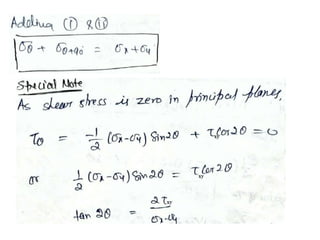 Adding ① & ②
σθ + σθ+90 = σx+σy
Special Note
As shear stress is zero in principal planes,
τθ = -1/2 (σx-σy) Sin2θ + τ Cos2θ = 0
or 1/2 (σx-σy) Sin2θ = τ Cos2θ
tan 2θ = 2τ/σx-σy